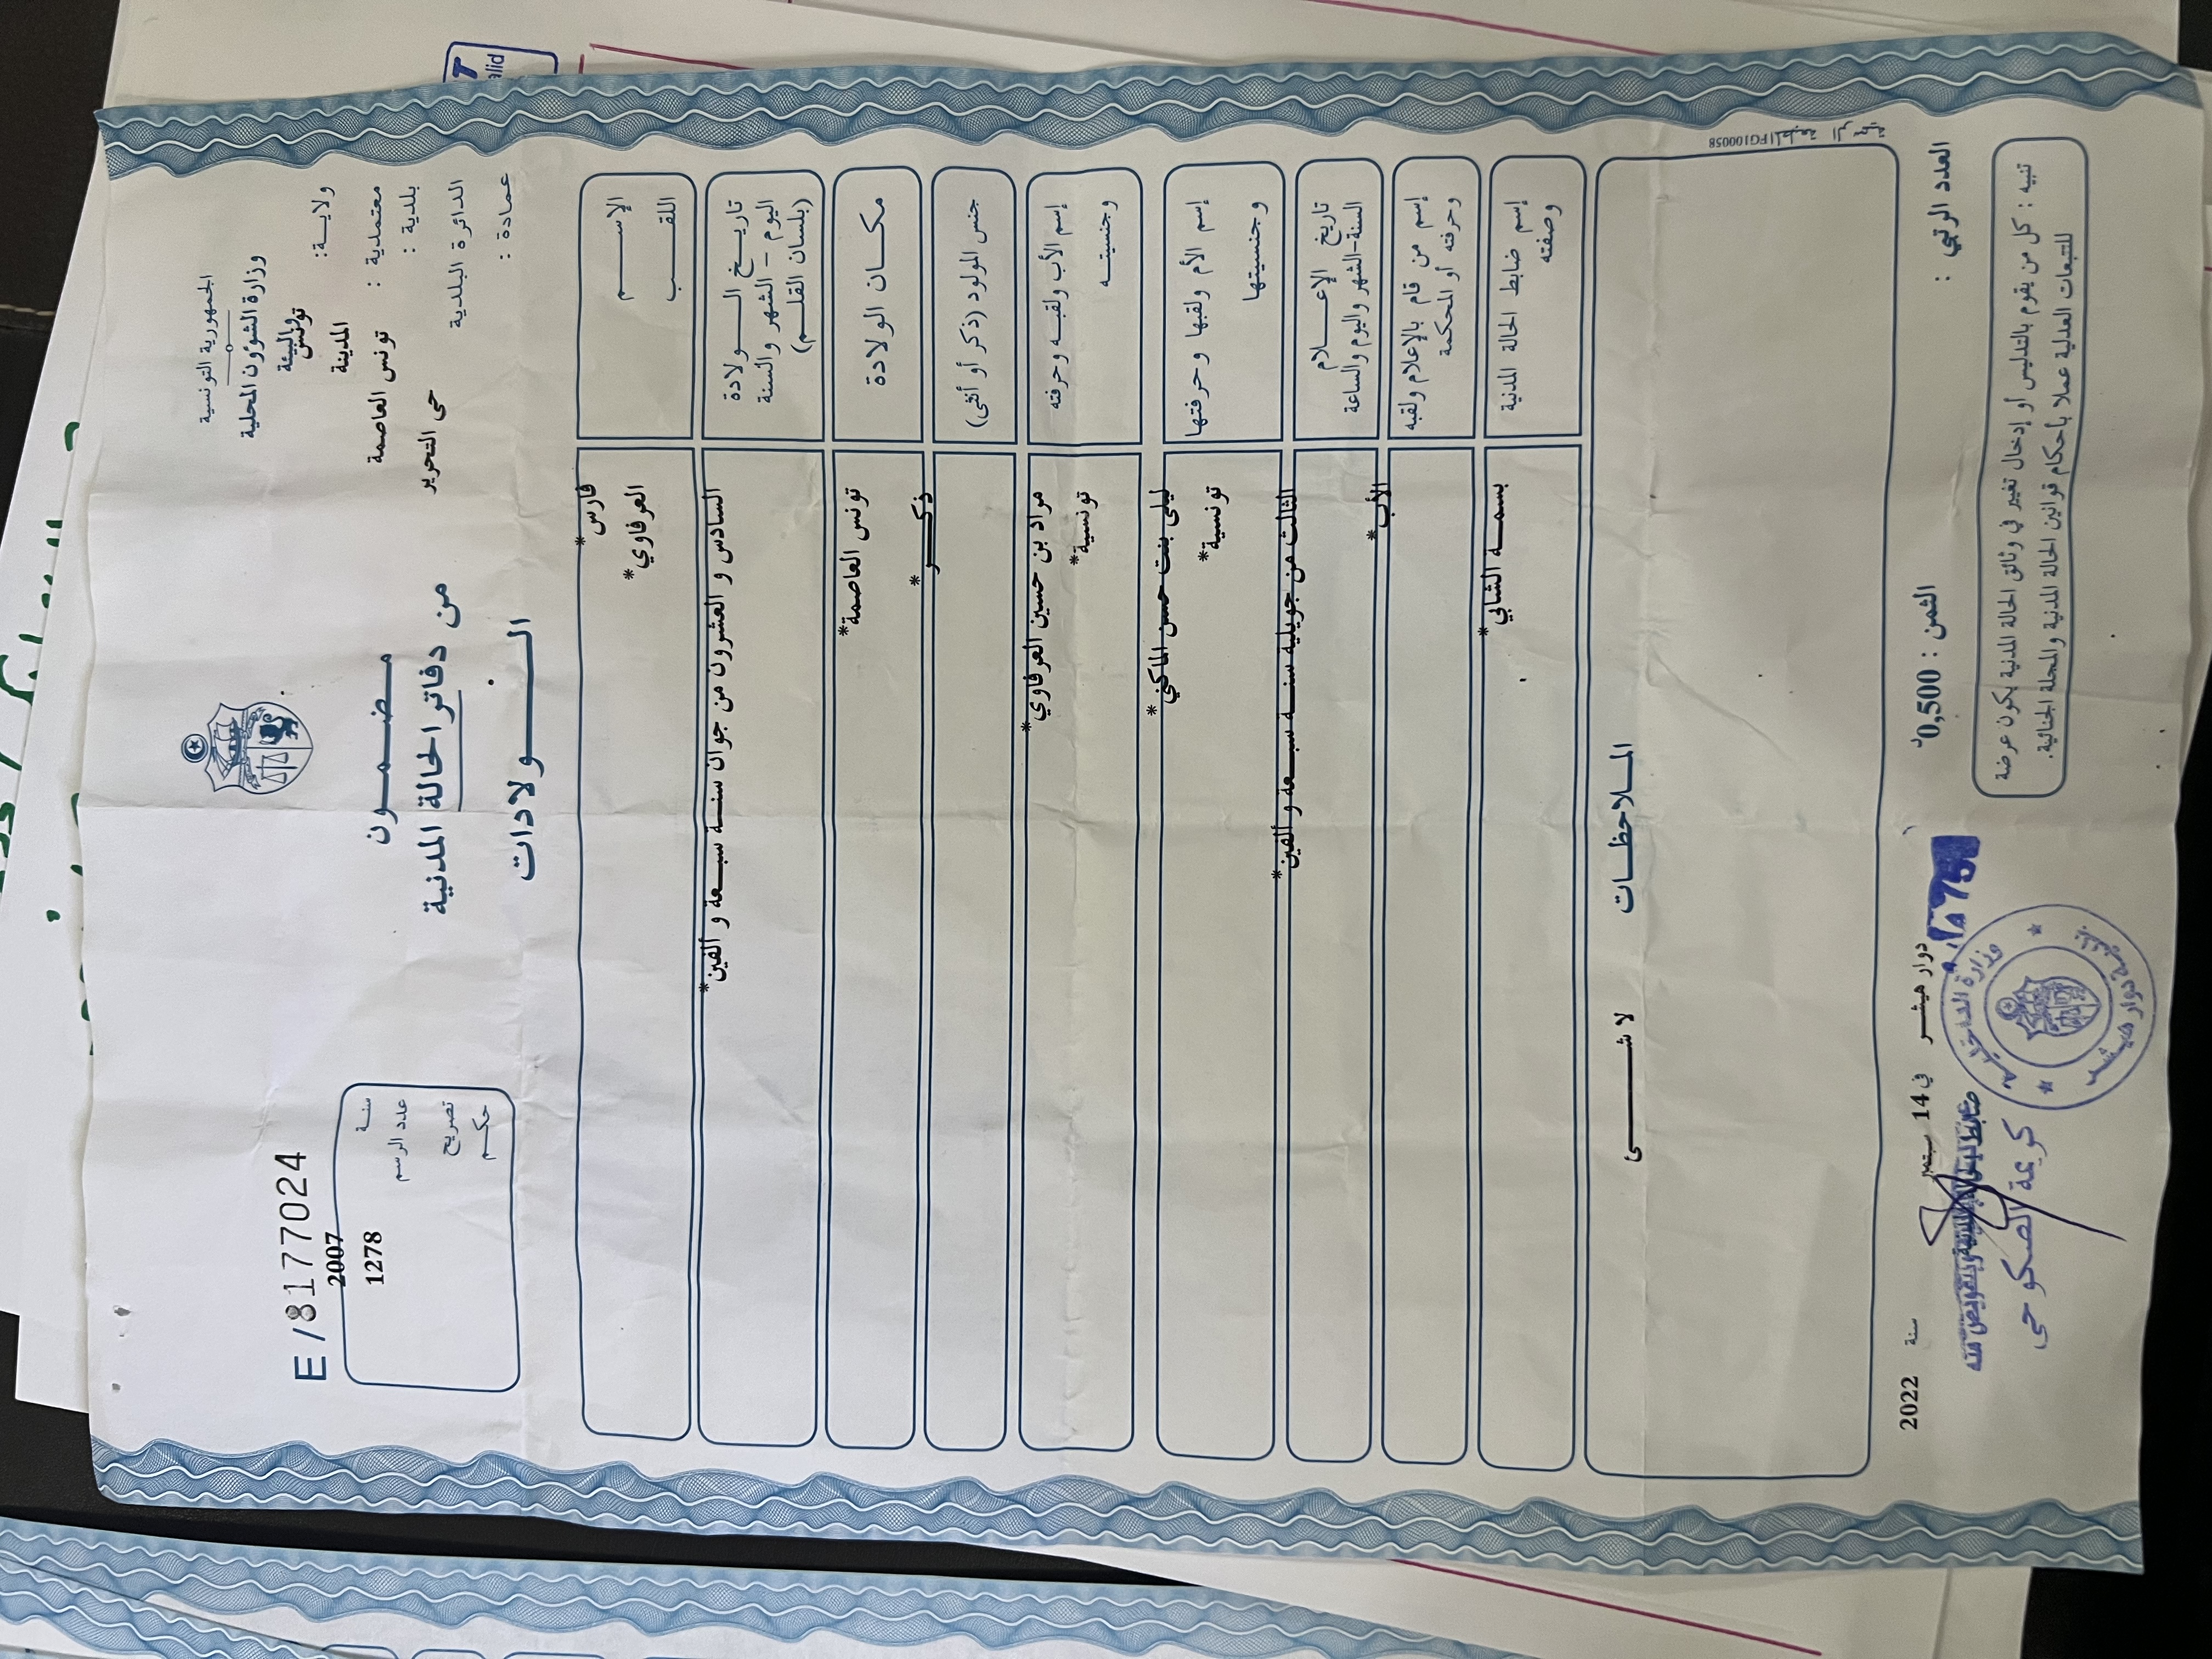 الجمهورية التونسية
وزارة الشؤون المحلية
والبيئة
ولاية: تونس
معتمدية : المدينة
بلدية : تونس العاصمة
الدائرة البلدية حي التحرير
عمادة :
مضمون
من دفاتر الحالة المدنية
الولادات
E /8177024
سنة 2007
عدد الرسم 1278
تصريح
حكم
الإسم فارس*
اللقب العرفاوي*
تاريخ الولادة
اليوم - الشهر والسنة
(بلسان القلم)
السادس و العشرون من جوان سنة سبعة و ألفين*
مكان الولادة تونس العاصمة*
جنس المولود (ذكر أو أنثى) ذكر*
إسم الأب ولقبه وحرفته مراد بن حسين العرفاوي*
وجنسيته تونسية*
إسم الأم ولقبها وحرفتها ليلى بنت حسن الماكني*
وجنسيتها تونسية*
تاريخ الإعلام
السنة-الشهر واليوم والساعة
الثالث من جويلية سنة سبعة و ألفين*
إسم من قام بالإعلام ولقبه الأب*
وحرفته أو المحكمة
إسم ضابط الحالة المدنية بسمة الشابي*
وصفته
الملاحظات
لا شئ
المطبعة الرسمية FG100058
العدد الرتبي :
الثمن : 0,500د
دوار هيشر في 14 سبتمبر سنة 2022
تنبيه : كل من يقوم بالتدليس أو إدخال تغيير في وثائق الحالة المدنية يكون عرضة
للتتبعات العدلية عملا بأحكام قوانين الحالة المدنية والمجلة الجنائية.
وزارة الداخلية
بلدية دوار هيشر
ضابط الحالة المدنية وبتفويض منه
كريمة الصكوحي